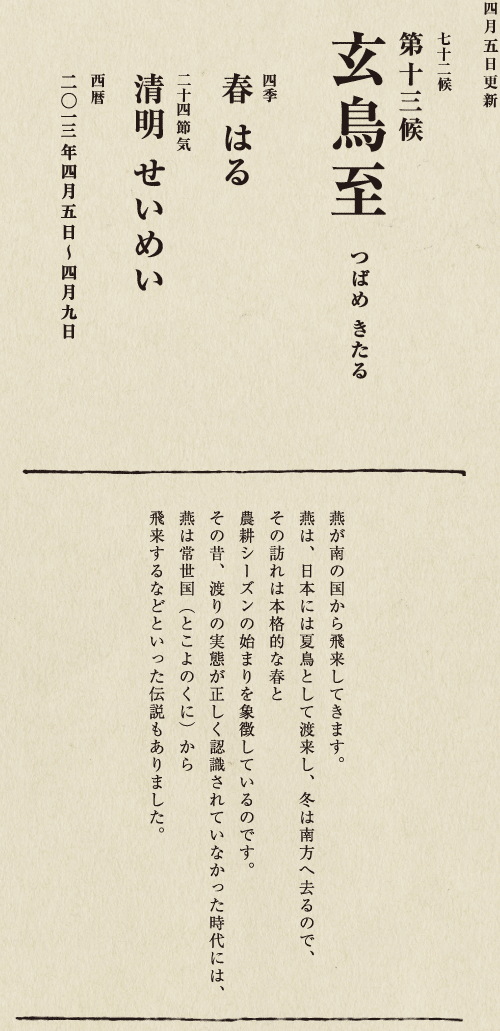 四月五日更新
七十二候
第十三候
玄鳥至 つばめ きたる
四季
春 はる
二十四節気
清明 せいめい
西暦
二〇一三年四月五日〜四月九日
燕が南の国から飛来してきます。
燕は、日本には夏鳥として渡来し、冬は南方へ去るので、
その訪れは本格的な春と
農耕シーズンの始まりを象徴しているのです。
その昔、渡りの実態が正しく認識されていなかった時代には、
燕は常世国（とこよのくに）から
飛来するなどといった伝説もありました。